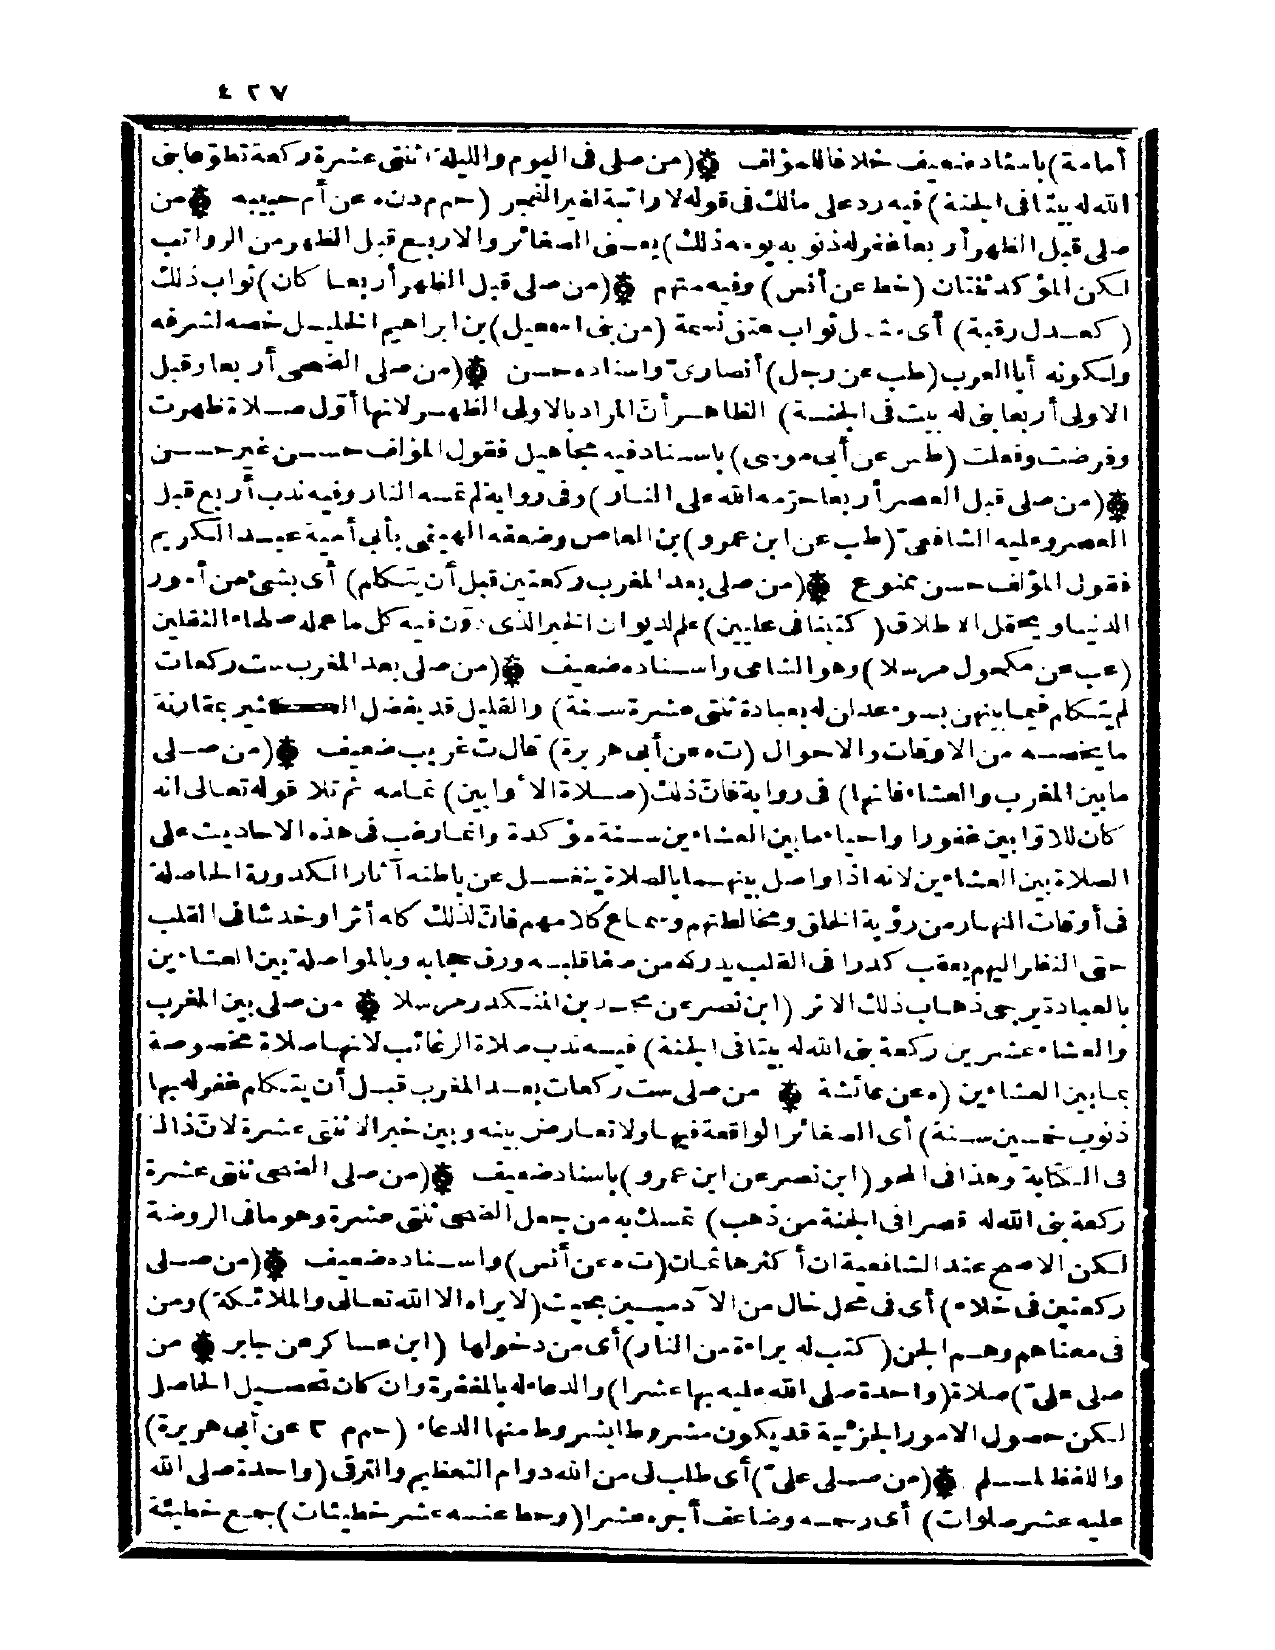 ٤٢٧
أمامة) باسناد ضعيف خلافا للمؤلف ۞ (من صلى فى اليوم والليلة اثنتى عشرة ركعة تطوّعا بنى
الله له بيتا فى الجنة) فيه رد على مالك فى قوله لا راتبة لغير الفجر (حم م د ن ه عن أم حبيبه ۞ من
صلى قبل الظهر أربعا غفر له ذنوبه يومه ذلك) يعنى الصغائر والاربع قبل الظهر من الرواتب
لكن المؤكد ثنتان (خط عن أنس) وفيه متهم ۞ (من صلى قبل الظهر أربعا كان) ثواب ذلك
(كعدل رقبة) أى مثل ثواب عتق نسمة (من بنى اسمعيل) بن ابراهيم الخليل خصه لشرفه
ولكونه أبا العرب (طب عن رجل) أنصارىّ واسناده حسن ۞ (من صلى الضحى أربعا وقبل
الاولى أربعا بنى له بيت فى الجنة) الظاهر أنّ المراد بالاولى الظهر لانها أوّل صلاة ظهرت
وفرضت وفعلت (طس عن أبى موسى) باسناد فيه مجاهيل فقول المؤلف حسن غير حسن
۞ (من صلى قبل العصر أربعا حرّمه الله على النار) وفى رواية لم تمسه النار وفيه ندب أربع قبل
العصر وعليه الشافعىّ (طب عن ابن عمرو) بن العاص وضعفه الهيثمى بأبى أمية عبد الكريم
فقول المؤلف حسن ممنوع ۞ (من صلى بعد المغرب ركعتين قبل أن يتكلم) أى بشئ من أمور
الدنيا ويحتمل الاطلاق (كتبتا فى عليين) علم لديوان الخير الذى دوّن فيه كل ما عمله صلحاء الثقلين
(عب عن مكحول مرسلا) وهو الشامى واسناده ضعيف ۞ (من صلى بعد المغرب ست ركعات
لم يتكلم فيما بينهن بسوء عدلن له بعبادة ثنتى عشرة سنة) والقليل قد يفضل الكثير بمقارنة
ما يخصه من الاوقات والاحوال (ت ه عن أبى هريرة) قال ت غريب ضعيف ۞ (من صلى
ما بين المغرب والعشاء فانها) فى رواية فانّ ذلك (صلاة الاوّابين) تمامه ثم تلا قوله تعالى انه
كان للاوّابين غفورا واحياء ما بين العشاءين سنة مؤكدة وانما رغب فى هذه الاحاديث على
الصلاة بين العشاءين لانه اذا واصل بينهما بالصلاة ينغسل عن باطنه آثار الكدورة الحاصلة
فى أوقات النهار من رؤية الخلق ومخالطتهم وسماع كلامهم فانّ لذلك كله أثرا وخدشا فى القلب
حتى النظر اليهم يعقب كدرا فى القلب يدركه من صفا قلبه ورق حجابه وبالمواصلة بين العشاءين
بالعبادة يرجى ذهاب ذلك الاثر (ابن نصر عن محمد بن المنكدر مرسلا ۞ من صلى بين المغرب
والعشاء عشرين ركعة بنى الله له بيتا فى الجنة) فيه ندب صلاة الرغائب لانها صلاة مخصوصة
بما بين العشاءين (ه عن عائشة ۞ من صلى ست ركعات بعد المغرب قبل أن يتكلم غفر له بها
ذنوب خمسين سنة) أى الصغائر الواقعة فيها ولا تعارض بينه وبين خبر الاثنتى عشرة لانّ ذاك
فى الكتابة وهذا فى المحو (ابن نصر عن ابن عمرو) باسناد ضعيف ۞ (من صلى الضحى ثنتى عشرة
ركعة بنى الله له قصرا فى الجنة من ذهب) تمسك به من جعل الضحى ثنتى عشرة وهو ما فى الروضة
لكن الاصح عند الشافعية ان أكثرها ثمان (ت ه عن أنس) واسناده ضعيف ۞ (من صلى
ركعتين فى خلاء) أى فى محل خال من الآدميين بحيث (لا يراه الا الله تعالى والملائكة) ومن
فى معناهم وهم الجن (كتب له براءة من النار) أى من دخولها (ابن عساكر عن جابر ۞ من
صلى علىّ) صلاة (واحدة صلى الله عليه بها عشرا) والدعاء له بالمغفرة وان كان تحصيل الحاصل
لكن حصول الامور الجزئية قد يكون مشروطا بشروط منها الدعاء (حم م ٣ عن أبى هريرة)
واللفظ لمسلم ۞ (من صلى علىّ) أى طلب لى من الله دوام التعظيم والترقى (واحدة صلى الله
عليه عشر صلوات) أى رحمه وضاعف أجره عشرا (وحط عنه عشر خطيئات) جمع خطيئة